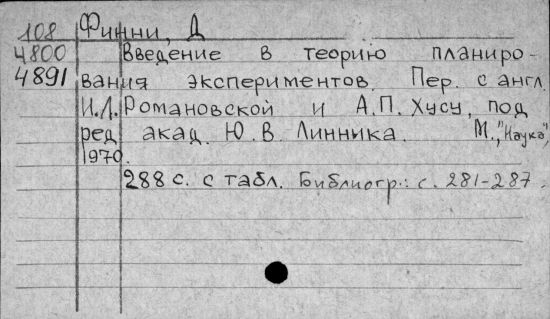 108 Финни, Д
4800 Введение в теорию планиро-
4891 вания экспериментов. Пер. с англ.
И.Л. Романовской и А.П. Хусу, под
ред. акад. Ю.В. Линника. М., "Наука",
1970.
288 с. с табл. Библиогр.: с. 281-287.